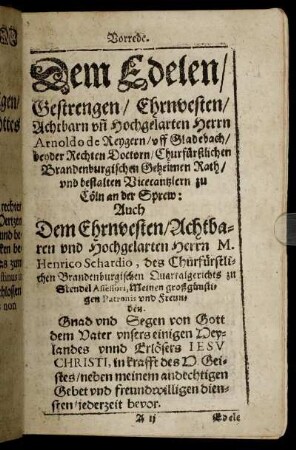 Vorrede.
Dem Edelen/
Gestrengen/ Ehrnvesten/
Achtbarn vñ Hochgelarten Herrn
Arnoldo de Reygern/ vff Gladebach/
beyder Rechten Doctorn/ Churfürstlichen
Brandenburgischen Geheimen Rath/
vnd bestalten Vicecantzlern zu
Cöln an der Sprew:
Auch
Dem Ehrnvesten/ Achtba-
ren vnd Hochgelarten Herrn M.
Henrico Schardio, des Churfürstli-
chen Brandenburgischen Quartalgerichts zu
Stendel Assessori, Meinen großgünsti-
gen Patronis vnd Freun-
den.
Gnad vnd Segen von Gott
dem Vater vnsers einigen Hey-
landes vnnd Erlösers IESV
CHRISTI, in krafft des H. Gei-
stes/ neben meinem andechtigen
Gebet vnd freundwilligen dien-
sten/ jederzeit bevor.
A ij
Edele